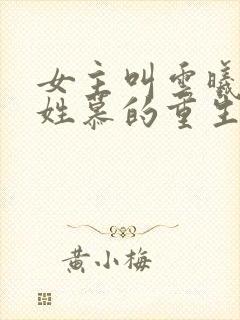 女主叫云曦
姓慕的重生
黄小梅